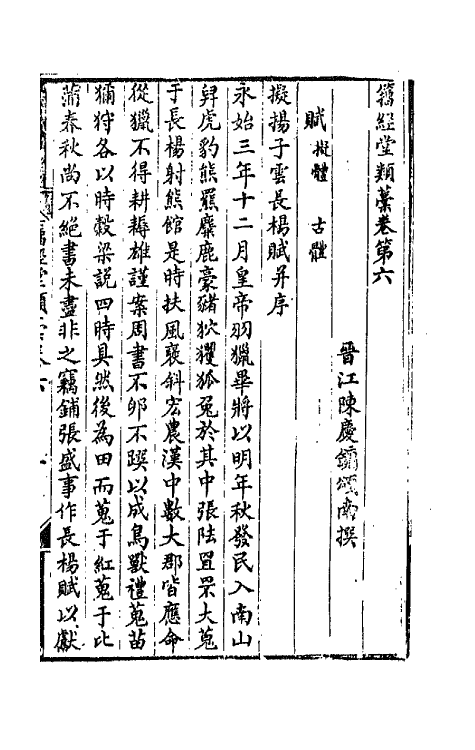 籀經堂類藁卷第六
晉江陳慶鏞頌南撰
賦 擬體 古體
擬揚子雲長楊賦并序
永始三年十二月皇帝羽獵畢將以明年秋發民入南山
舁虎豹熊羆麋鹿豪豬狖玃狐兔於其中張陸罝罘大蒐
于長楊射熊館是時扶風襃斜宏農漢中數大郡皆應命
從獵不得耕耨雄謹案周書不卵不蹊以成鳥獸禮蒐苗
獮狩各以時穀梁說四時具然後為田而蒐于紅蒐于比
蒲春秋尚不絕書未盡非之竊鋪張盛事作長楊賦以獻